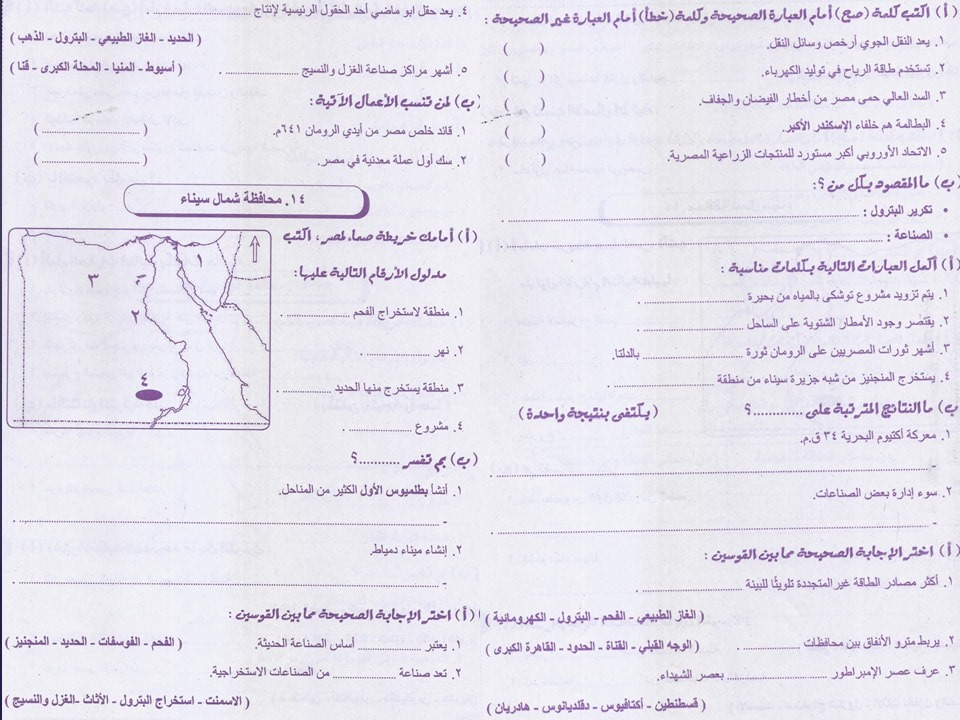 (أ) اكتب كلمة (صح) أمام العبارة الصحيحة وكلمة (خطأ) أمام العبارة غير الصحيحة :
١. يعد النقل الجوي أرخص وسائل النقل. ( )
٢. تستخدم طاقة الرياح في توليد الكهرباء. ( )
٣. السد العالي حمى مصر من أخطار الفيضان والجفاف. ( )
٤. البطالمة هم خلفاء الإسكندر الأكبر. ( )
٥. الاتحاد الأوروبي أكبر مستورد للمنتجات الزراعية المصرية. ( )
(ب) ما المقصود بكل من ؟:
• تكرير البترول : ............
• الصناعة : ............
(أ) أكمل العبارات التالية بكلمات مناسبة :
١. يتم تزويد مشروع توشكى بالمياه من بحيرة ............ .
٢. يقتصر وجود الأمطار الشتوية على الساحل ............ .
٣. أشهر ثورات المصريين على الرومان ثورة ............ بالدلتا.
٤. يستخرج المنجنيز من شبه جزيرة سيناء من منطقة ............ .
(ب) ما النتائج المترتبة على ............؟ (يكتفى بنتيجة واحدة)
١. معركة أكتيوم البحرية ٣٤ ق.م.
- ............ .
٢. سوء إدارة بعض الصناعات.
- ............ .
(أ) اختر الإجابة الصحيحة مما بين القوسين :
١. أكثر مصادر الطاقة غير المتجددة تلويثًا للبيئة ............ .
(الغاز الطبيعي - الفحم - البترول - الكهرومائية)
٢. يربط مترو الأنفاق بين محافظات ............ . (الوجه القبلي - القناة - الحدود - القاهرة الكبرى)
٣. عرف عصر الإمبراطور ............ بعصر الشهداء.
(قسطنطين - أكتافيوس - دقلديانوس - هادريان)
٤. يعد حقل ابو ماضي أحد الحقول الرئيسية لإنتاج ............ .
(الحديد - الغاز الطبيعي - البترول - الذهب)
٥. أشهر مراكز صناعة الغزل والنسيج ............ . (أسيوط - المنيا - المحلة الكبرى - قنا)
(ب) لمن تنسب الأعمال الآتية :
١. قائد خلص مصر من أيدي الرومان ٦٤١م. (............)
٢. سك أول عملة معدنية في مصر. (............)
١٤. محافظة شمال سيناء
(أ) أمامك خريطة صماء لمصر، اكتب
مدلول الأرقام التالية عليها :
١. منطقة لاستخراج الفحم ............ .
٢. نهر ............ .
٣. منطقة يستخرج منها الحديد ............ .
٤. مشروع ............ .
١
٣
٢
٤
(ب) بم تفسر ............؟
١. أنشأ بطلميوس الأول الكثير من المناحل.
- ............ .
٢. إنشاء ميناء دمياط.
- ............ .
(أ) اختر الإجابة الصحيحة مما بين القوسين :
١. يعتبر ............ أساس الصناعة الحديثة. (الفحم - الفوسفات - الحديد - المنجنيز)
٢. تعد صناعة ............ من الصناعات الاستخراجية.
(الاسمنت - استخراج البترول - الأثاث -الغزل والنسيج)